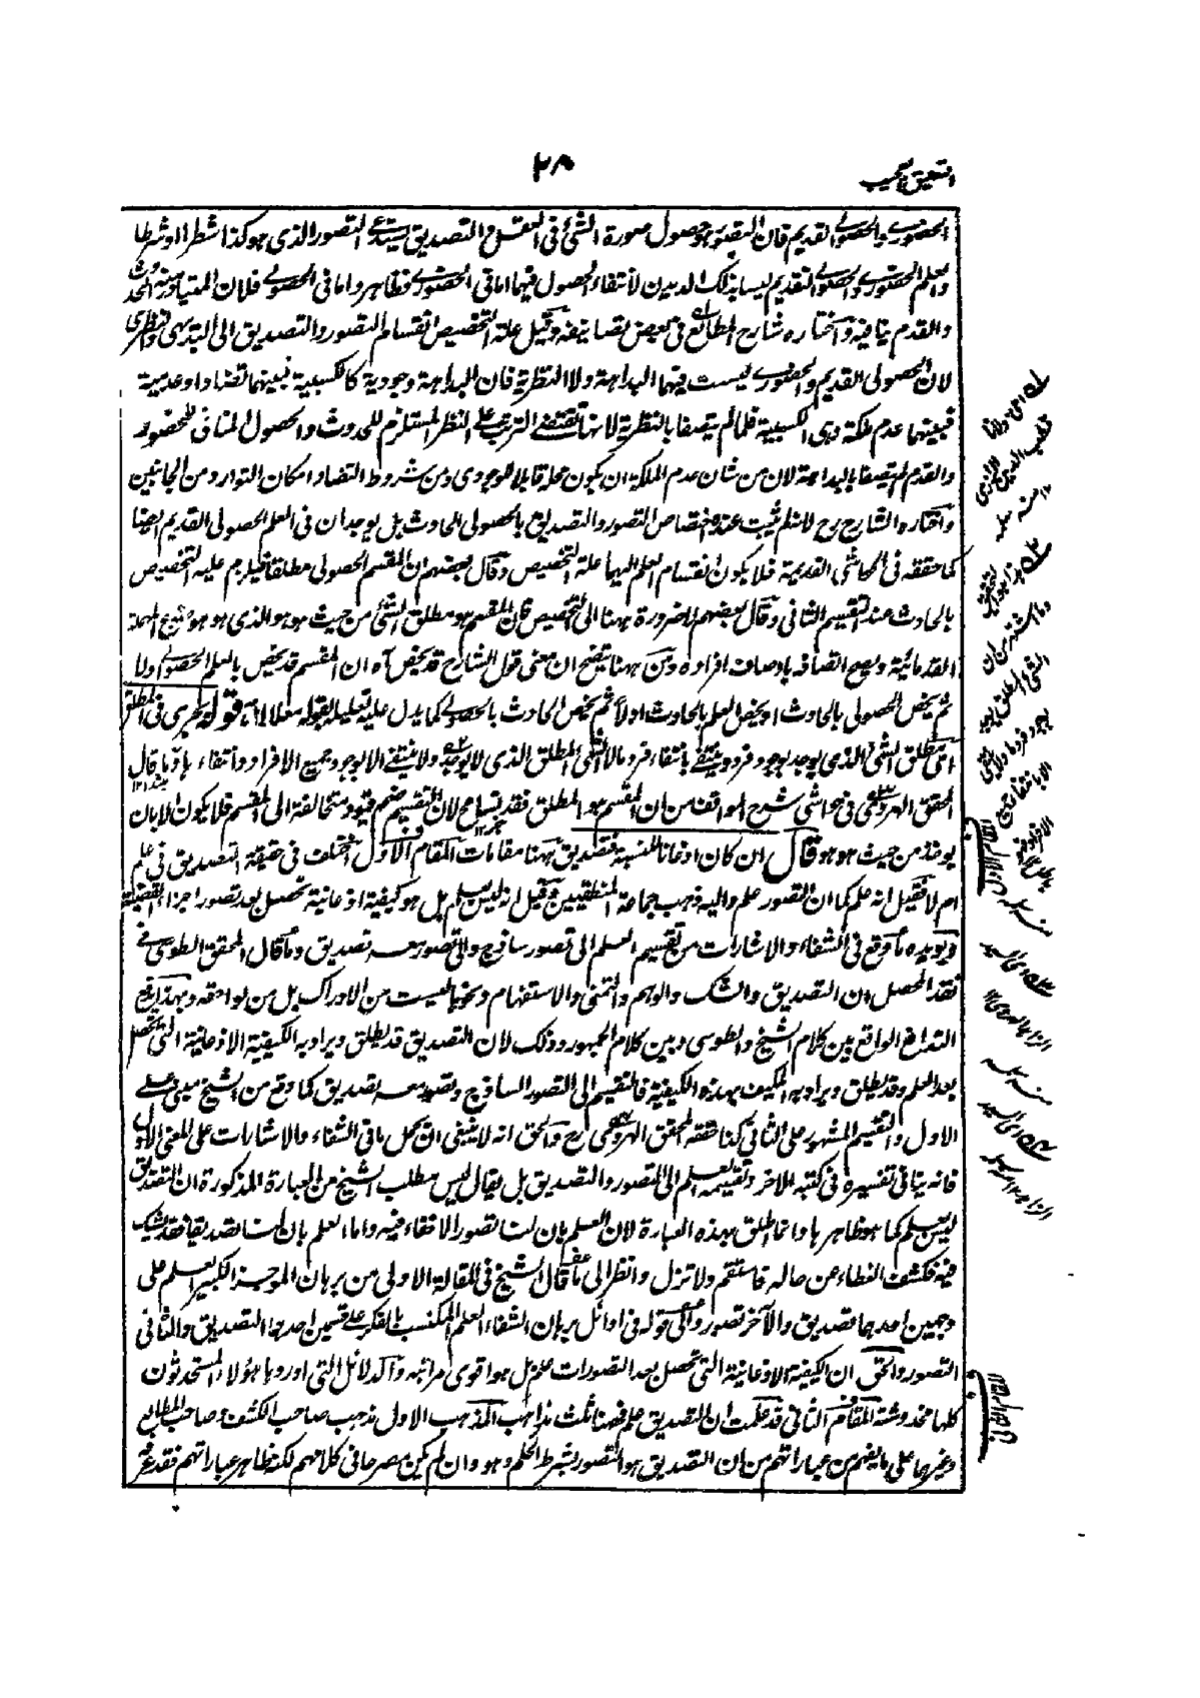 التعليق العجيب
٢٨
الحضوري والحصولي القديم فان التصور هو حصول صورة الشئ في العقل والتصديق يستدعي التصور الذي هو كذا شطرا او شرطا
والعلم الحضوري والحصولي القديم ليسا بذلك لانتفاء الحصول فيهما اما في الحضوري فظاهر واما في الحصولي فلان المتبادر منه الحدوث
والقدم ينافيه واختاره شارح المطالع في بعض تصانيفه وقيل علة التخصيص انقسام التصور والتصديق الى البديهي والنظري
لان الحصولي القديم والحضوري ليست فيهما البداهة ولا النظرية فان البداهة وجودية كالكسبية فبينهما تضاد او عدمية
فبينهما عدم ملكة وهي الكسبية فلما لم يتصفا بالنظرية لانها تقتضي الترتب على النظر المستلزم للحدوث والحصول المنافي للحضور
والقدم لم يتصفا بالبداهة لان من شان عدم الملكة ان يكون محله قابلا للوجودي ومن شروط التضاد امكان التوارد من الجانبين
واختاره الشارح رح لانه لم يثبت عنده اختصاص التصور والتصديق بالحصولي الحادث بل يوجدان في العلم الحصولي القديم ايضا
كما حققه في الحواشي القديمة فلا يكون انقسام العلم اليهما علة التخصيص وقال بعضهم ان المقسم الحصولي مطلقا فيلزم عليه التخصيص
بالحادث عند التقسيم الثاني وقال بعضهم لا ضرورة ههنا الى التخصيص فان المقسم هو مطلق الشئ من حيث هو هو الذي هو موضوع المهملة
القدمائية ويصح اتصافه باوصاف افراده ومن ههنا يتضح ان معنى قول الشارح قد يخص آه ان المقسم قد يخص بالعلم الحصولي اولا
ثم يخص الحصولي بالحادث او يخص العلم بالحادث اولا ثم يخص الحادث بالحصولي كما يدل عليه تعليله بقوله معللا آه قوله يجري في المطلق
اي مطلق الشئ الذي يوجد بوجود فرد وينتفي بانتفاء فرد ما لا الشئ المطلق الذي لا يوجد ولا ينتفي الا بوجود جميع الافراد وانتفاء ها وما قال
المحقق الهروي في حواشي شرح المواقف من ان المقسم هو المطلق فقد تسامح لان التقسيم ضم قيود متخالفة الى المقسم فلا يكون الا بان
يوخذ من حيث هو هو قال ان كان اذعانا للنسبة فتصديق ههنا مقامات المقام الاول اختلف في حقيقة التصديق في علم
ام لا فقيل انه علم كما ان التصور علم واليه ذهب جماعة المنطقيين وقيل انه ليس بعلم بل هو كيفية اذعانية تحصل بعد تصور اجزاء القضية
ويويده ما وقع في الشفاء والاشارات من تقسيم العلم الى تصور ساذج والى تصور معه تصديق وما قال المحقق الطوسي في
نقد المحصل ان التصديق والشك والوهم والتمني والاستفهام ونحوها ليست من الادراك بل من لواحقه وبهذا يدفع
التدافع الواقع بين كلام الشيخ والطوسي وبين كلام الجمهور وذلك لان التصديق قد يطلق ويراد به الكيفية الاذعانية التي تحصل
بعد العلم وقد يطلق ويراد به المكيف بهذه الكيفية فالتقسيم الى التصور الساذج وتصور معه تصديق كما وقع من الشيخ مبني على
الاول والتقسيم المشهور على الثاني كذا حققه المحقق الهروي رح والحق انه لا ينبغي ان يحمل ما في الشفاء والاشارات على المعنى الاول
فانه ينافي تفسيره في كتبه الاخر وتقسيمه العلم الى التصور والتصديق بل يقال ليس مطلب الشيخ من العبارة المذكورة ان التصديق
ليس بعلم كما هو ظاهرها وانما اطلق بهذه العبارة لان العلم بان لنا تصورا لا خفاء فيه واما العلم بان لنا تصديقا فقد يشك
فيه فكشف الغطاء عن حاله فاستقم ولا تزل وانظر الى ما قال الشيخ في المقالة الاولى من برهان الموجز الكبير العلم على
وجهين احدهما تصديق والآخر تصور والى قوله في اوائل برهان الشفاء العلم المكتسب بالفكر على قسمين احدهما التصديق والثاني
التصور والحق ان الكيفية الاذعانية التي تحصل بعد التصورات علم بل هو اقوى مراتبه والدلائل التي اوردها هؤلاء المستحدثون
كلها مخدوشة المقام الثاني قد علمت ان التصديق علم فهنا ثلث مذاهب المذهب الاول مذهب صاحب الكشف وصاحب المطالع
وغيرهما على ما يفهم من عباراتهم من ان التصديق هو التصور بشرط الحكم وهو وان لم يكن مصرحا في كلامهم لكنه ظاهر عباراتهم فقد عرفه